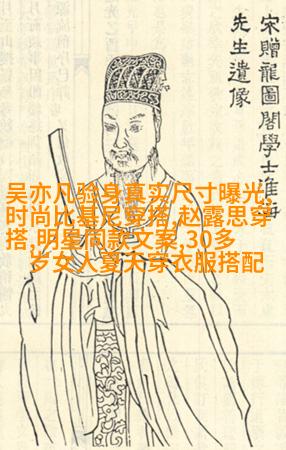 宋贈龍圖閣學士淮海
先生遺像
吴亦凡验身真实尺寸曝光,
时尚比基尼穿搭,赵露思穿
搭,明星同款文案,30多
岁女人夏天穿衣服搭配